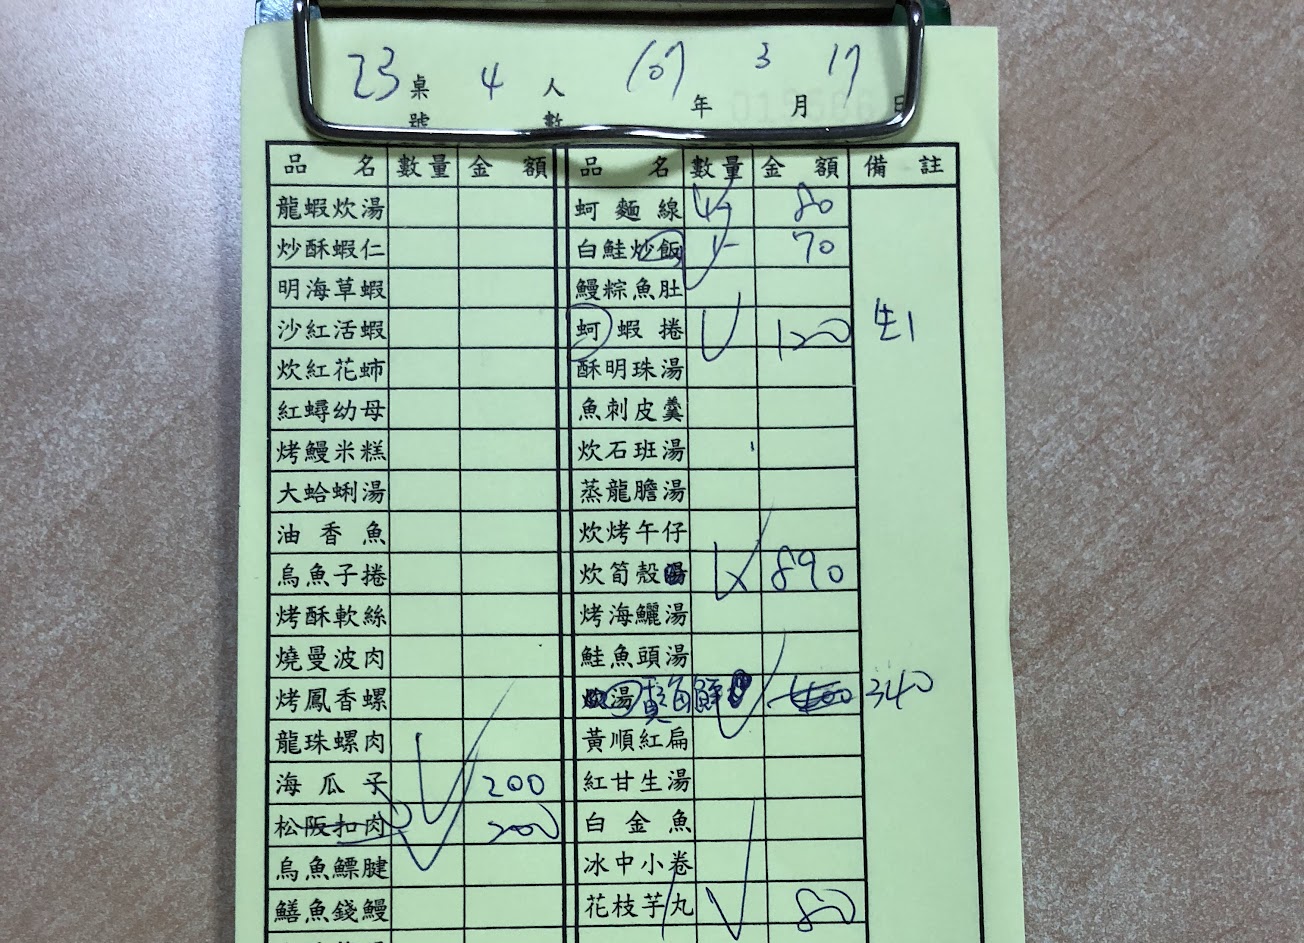 23 桌號 4 人數 107 年 3 月 17 日
品名 數量 金額 品名 數量 金額 備註
龍蝦炊湯 蚵麵線 4 80
炒酥蝦仁 白鮭炒飯 1 70
明海草蝦 鰻粽魚肚
沙紅活蝦 蚵蝦捲 120 生1
炊紅花蛳 酥明珠湯
紅蟳幼母 魚刺皮羹
烤鰻米糕 炊石班湯
大蛤蜊湯 蒸龍膽湯
油香魚 炊烤午仔
烏魚子捲 炊筍殼湯 890
烤酥軟絲 烤海鱺湯
燒曼波肉 鮭魚頭湯
烤鳳香螺 湯 400 340
龍珠螺肉 黃順紅扁
海瓜子 200 紅甘生湯
松阪扣肉 200 白金魚
烏魚鰾腱 冰中小卷
鱔魚錢鰻 花枝芋丸 80